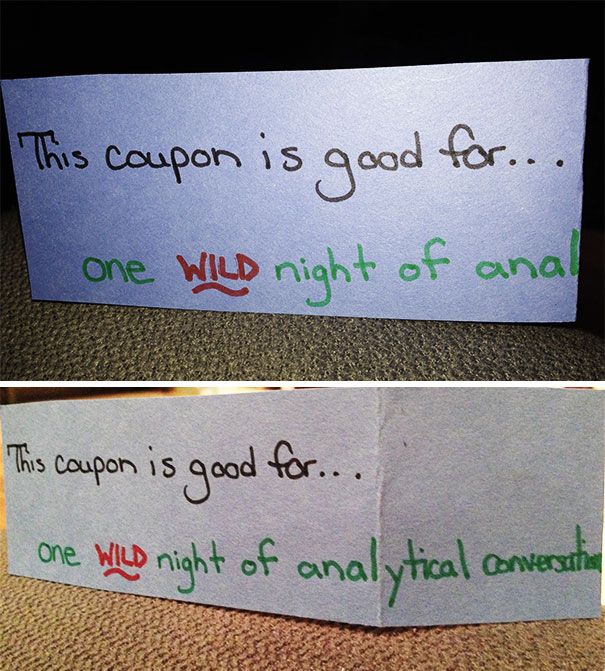 This coupon is good for...
one WILD night of anal
This coupon is good for...
one WILD night of analytical conversation